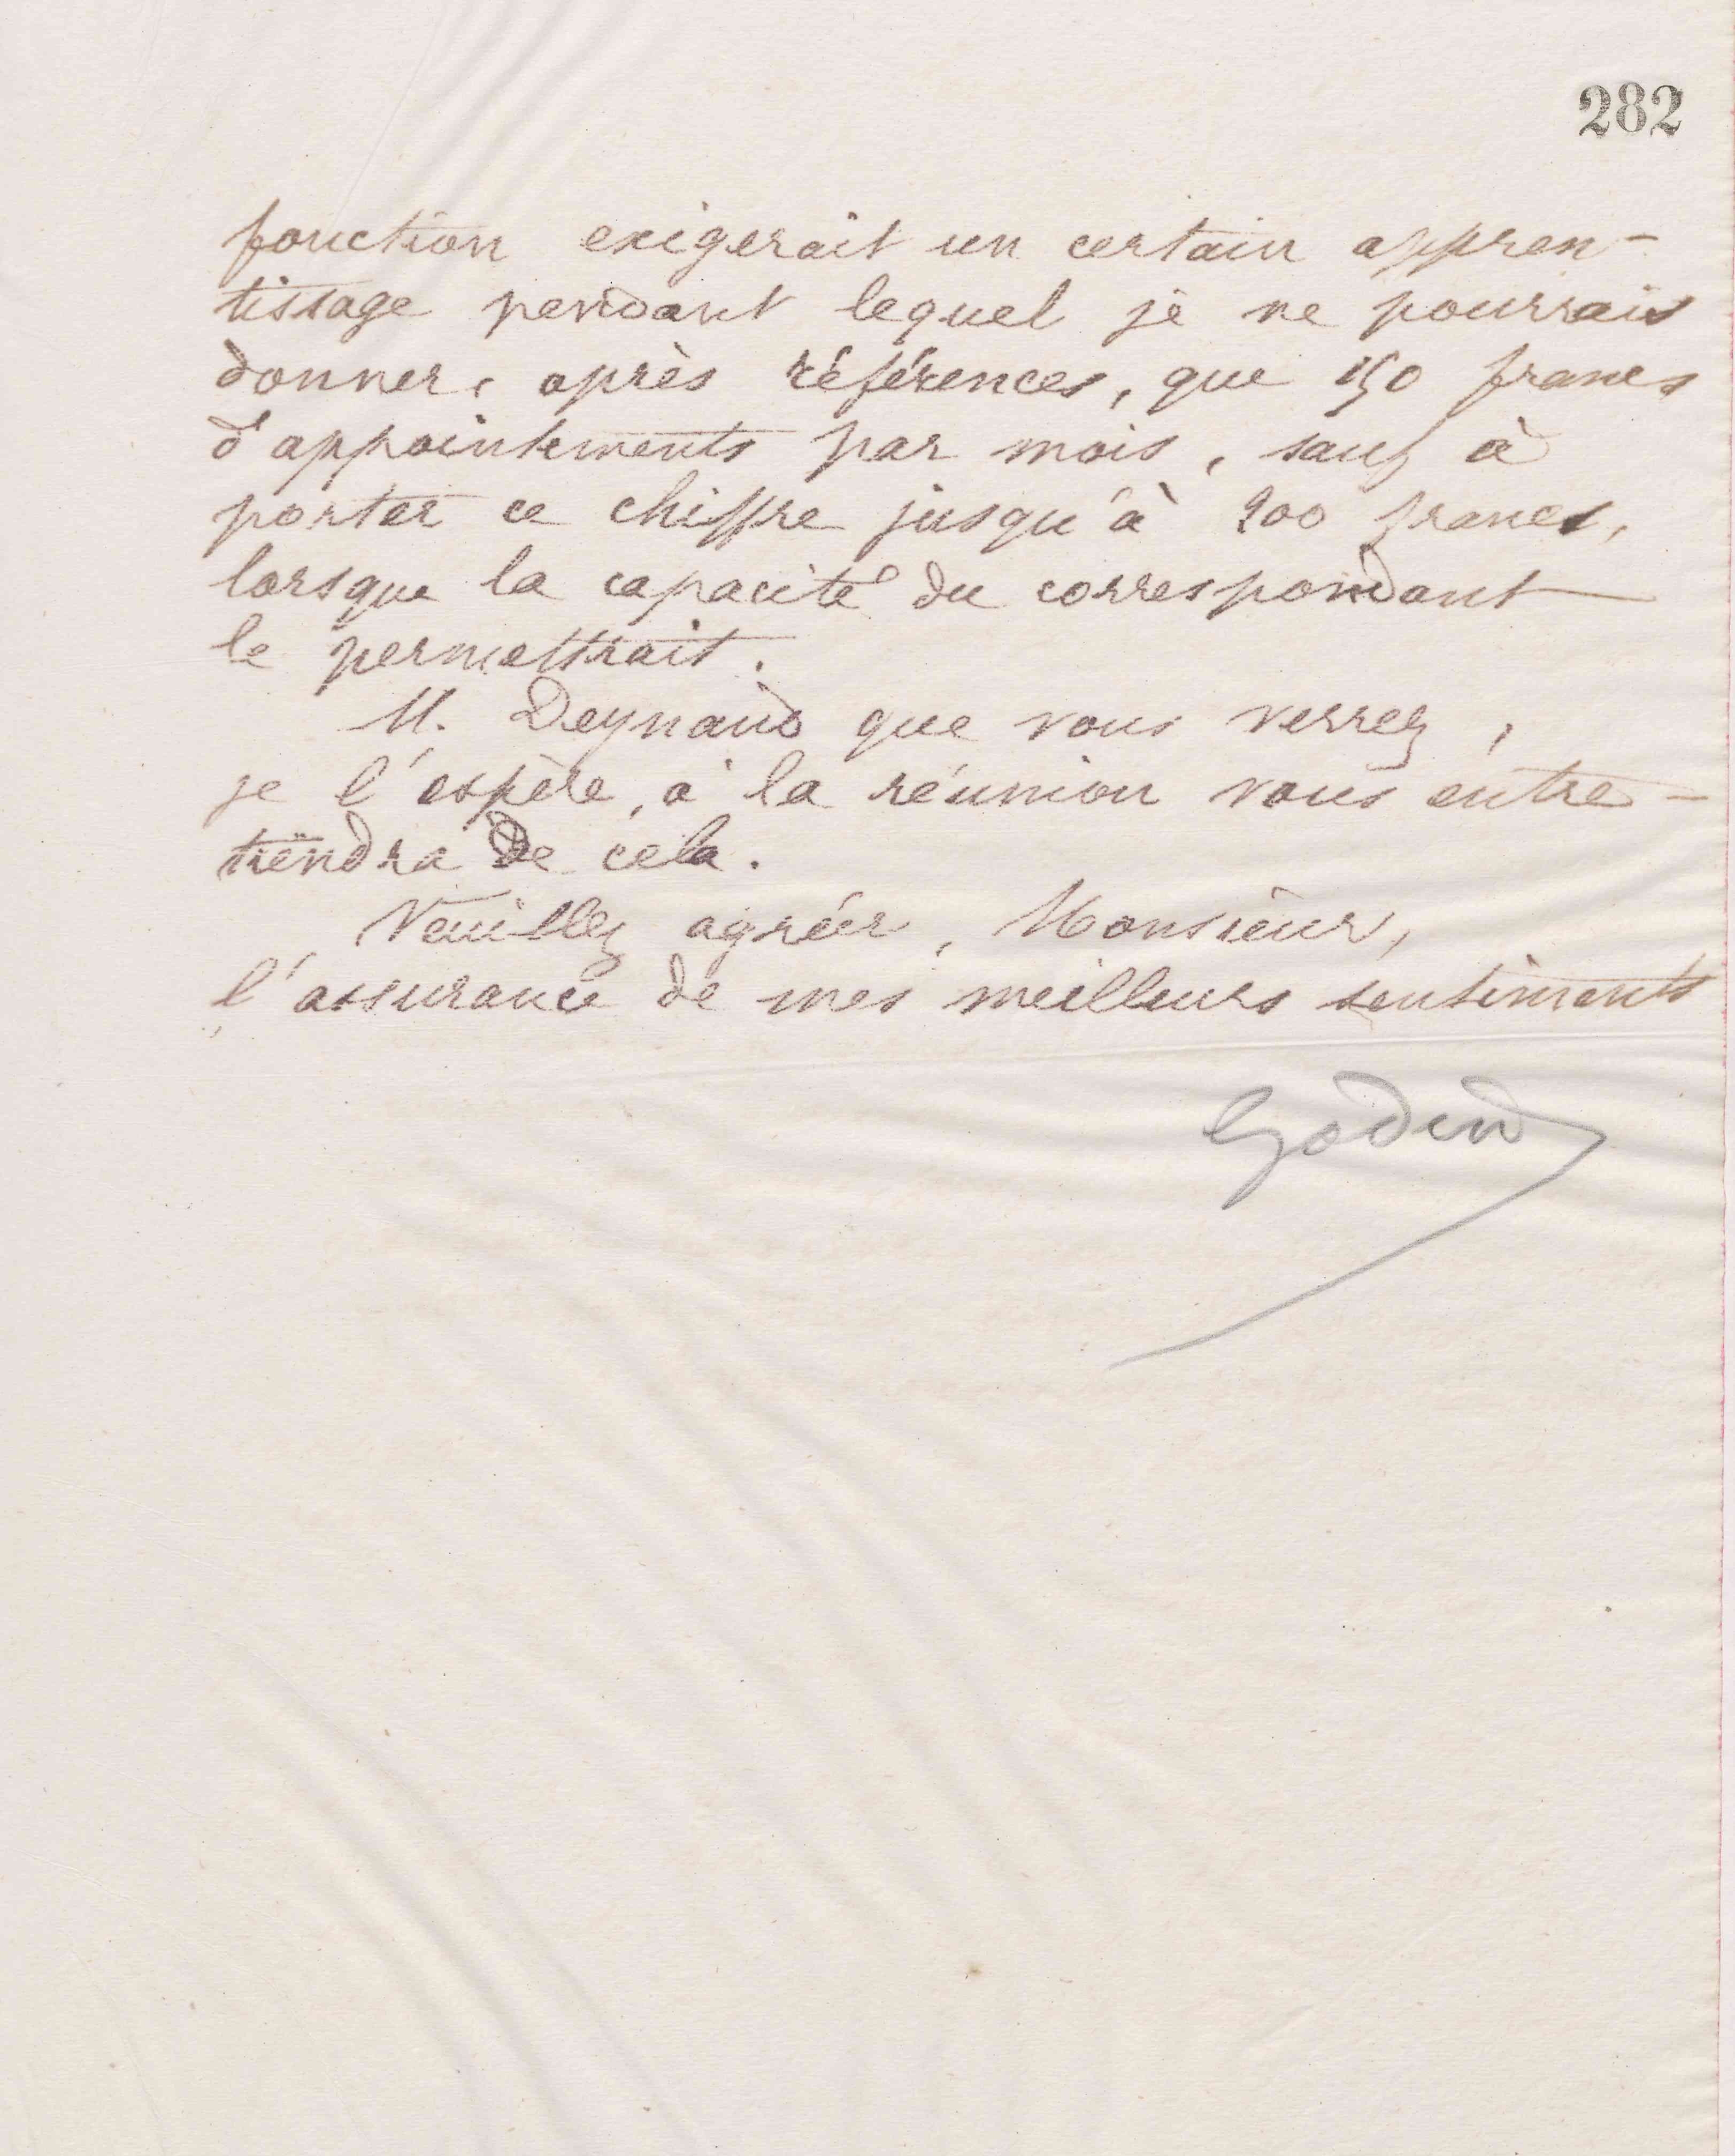 282
fonction exigerait un certain appren-
tissage pendant lequel je ne pourrais
donner, après références, que 150 francs
d'appointements par mois, sauf à
porter ce chiffre jusqu'à 200 francs,
lorsque la capacité du correspondant
le permettrait.
M. Deynaud que vous verrez,
je l'espère, à la réunion vous entre-
tiendra de cela.
Veuillez agréer, Monsieur,
l'assurance de mes meilleurs sentiments
Godin